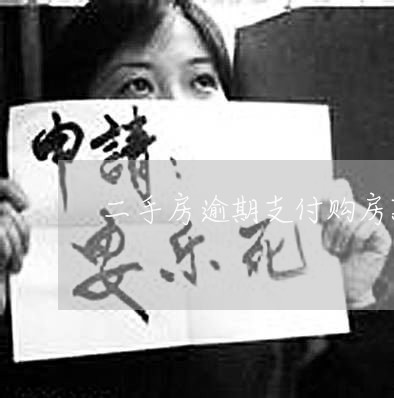 申請：
二手房逾期支付购房
安乐死